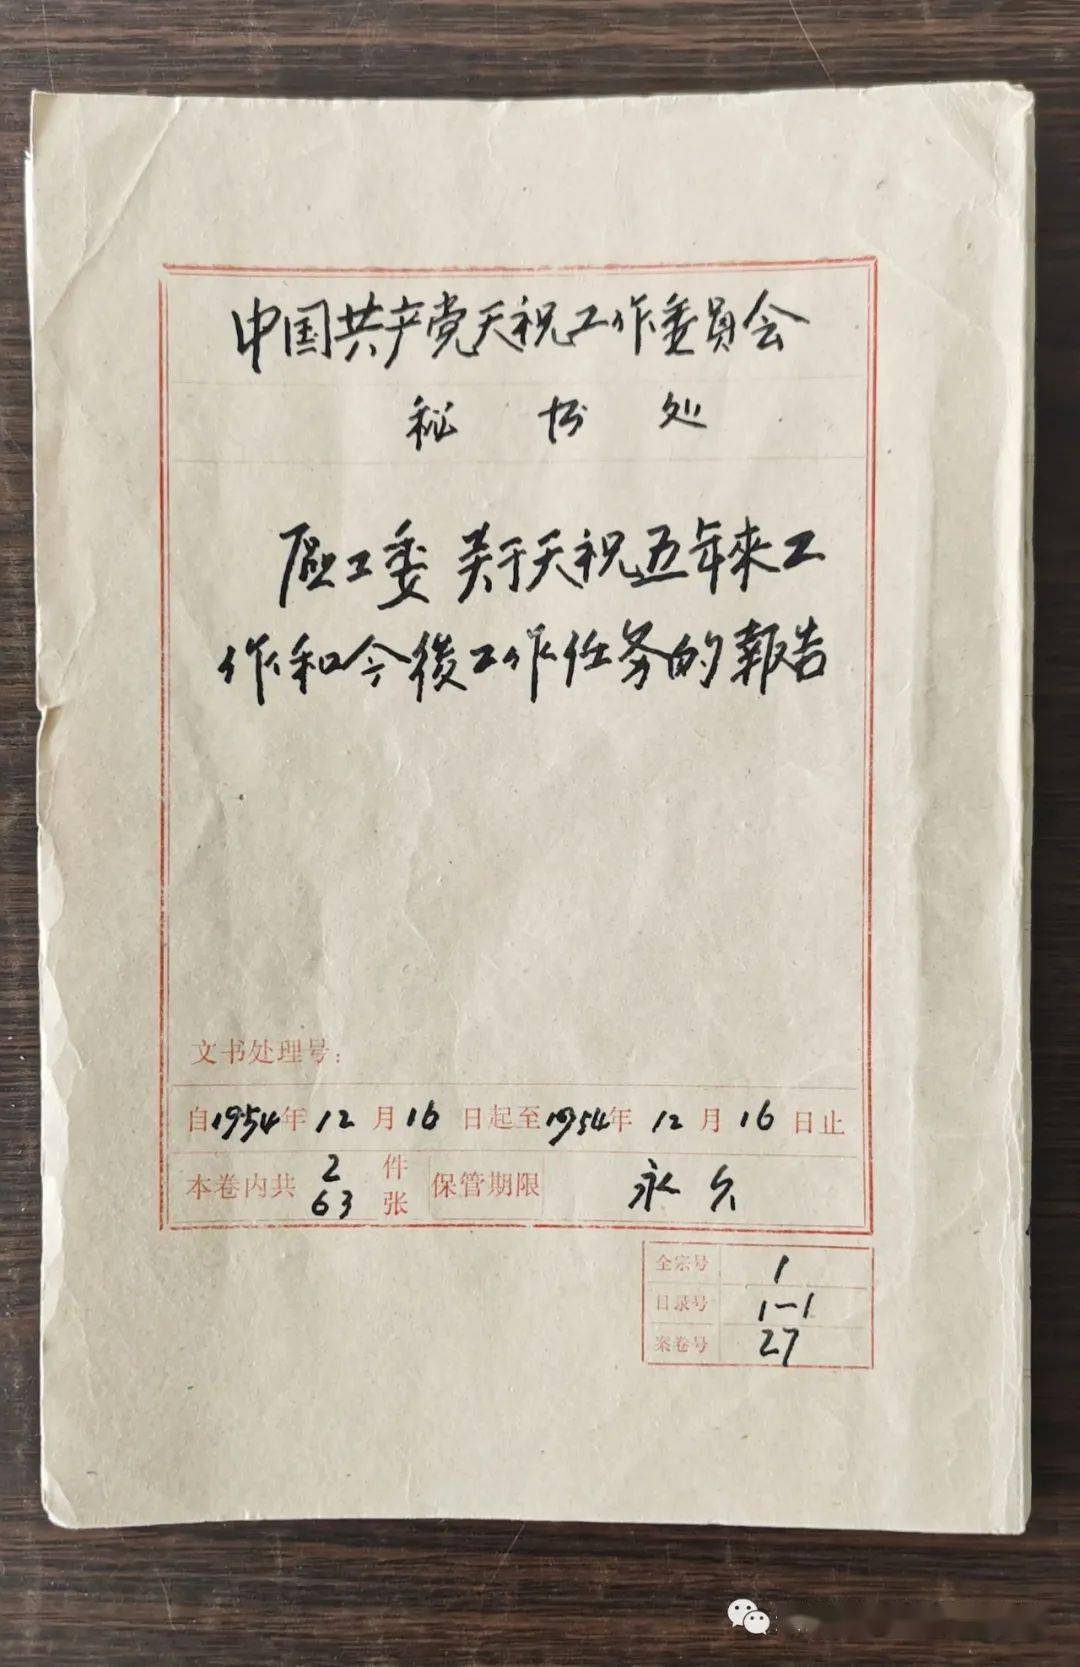 中国共产党天祝工作委員会
秘书处
工委关于天祝五年来工
作和今後工作任务的報告
文书处理号：
自1954年12月16日起至1954年12月16日止
本卷内共2件63张 保管期限 永久
全宗号 1
目录号 1-1
案卷号 27